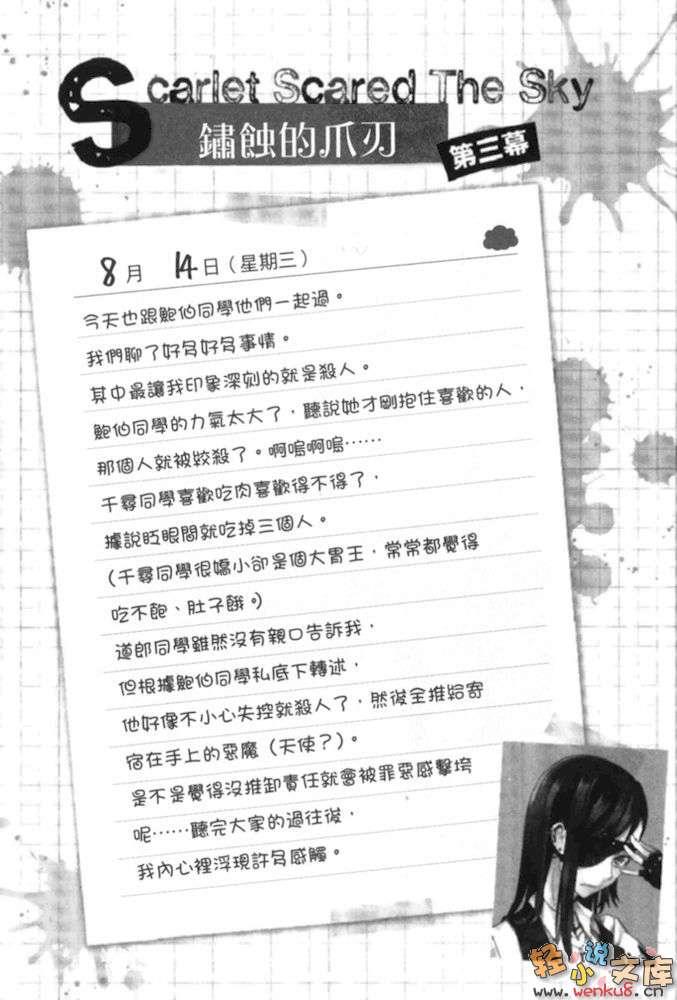 Scarlet Scared The Sky
鏽蝕的爪刃
第三幕
8月 14日(星期三)
今天也跟鮑伯同學他們一起過。
我們聊了好多好多事情。
其中最讓我印象深刻的就是殺人。
鮑伯同學的力氣太大了,聽說她才剛抱住喜歡的人,
那個人就被絞殺了。啊嗚啊嗚……
千尋同學喜歡吃肉喜歡得不得了,
據說眨眼間就吃掉三個人。
(千尋同學很嬌小卻是個大胃王,常常都覺得
吃不飽、肚子餓。)
道郎同學雖然沒有親口告訴我,
但根據鮑伯同學私底下轉述,
他好像不小心失控就殺人了,然後全推給寄
宿在手上的惡魔(天使?)。
是不是覺得沒推卸責任就會被罪惡感擊垮
呢……聽完大家的過往後,
我內心裡浮現許多感觸。
轻小说文库
www.wenku8.cn